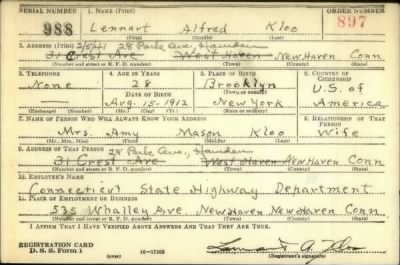 SERIAL NUMBER 1. NAME (Print) ORDER NUMBER
988 Lennart Alfred Kloo 897
(First) (Middle) (Last)
2. ADDRESS (Print) 2/5/41 28 Park Ave., Hamden
31 Crest Ave West Haven New Haven Conn
(Number and street or R. F. D. number) (Town) (County) (State)
3. TELEPHONE 4. AGE IN YEARS 5. PLACE OF BIRTH 6. COUNTRY OF CITIZENSHIP
None 28 Brooklyn U.S. of
DATE OF BIRTH (Town or county)
Aug. 15. 1912 New York America
(Exchange) (Number) (Mo.) (Day) (Yr.) (State or country)
7. NAME OF PERSON WHO WILL ALWAYS KNOW YOUR ADDRESS 8. RELATIONSHIP OF THAT PERSON
Mrs. Amy Mason Kloo Wife
(Mr., Mrs., Miss) (First) (Middle) (Last)
9. ADDRESS OF THAT PERSON 28 Park Ave., Hamden
31 Crest Ave West Haven New Haven Conn
(Number and street or R. F. D. number) (Town) (County) (State)
10. EMPLOYER'S NAME
Connecticut State Highway Department
11. PLACE OF EMPLOYMENT OR BUSINESS
535 Whalley Ave. New Haven New Haven Conn
(Number and street or R. F. D. number) (Town) (County) (State)
I AFFIRM THAT I HAVE VERIFIED ABOVE ANSWERS AND THAT THEY ARE TRUE.
REGISTRATION CARD
D. S. S. Form 1 (over) 16-17105 (Registrant's signature)